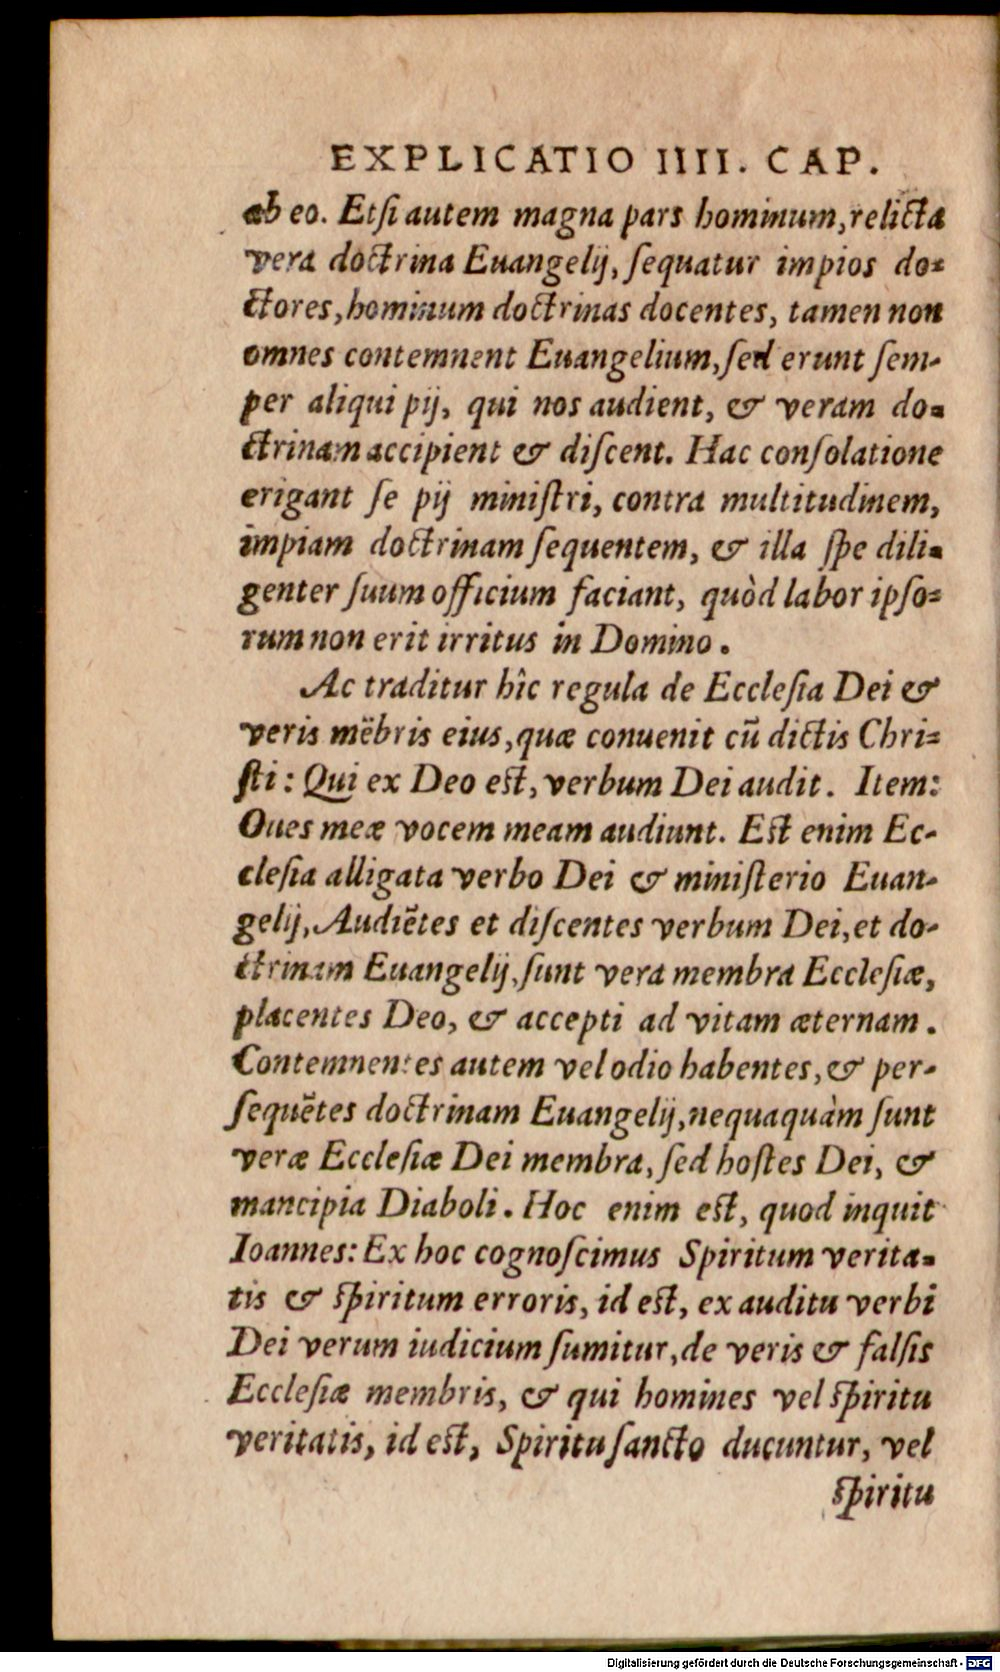 EXPLICATIO IIII. CAP.
ab eo. Etſi autem magna pars hominum, relicta
vera doctrina Euangelij, ſequatur impios do-
ctores, hominum doctrinas docentes, tamen non
omnes contemnent Euangelium, ſed erunt ſem-
per aliqui pij, qui nos audient, & veram do-
ctrinam accipient & diſcent. Hac conſolatione
erigant ſe pij miniſtri, contra multitudinem,
impiam doctrinam ſequentem, & illa ſpe dili-
genter ſuum officium faciant, quòd labor ipſo-
rum non erit irritus in Domino.
Ac traditur hîc regula de Eccleſia Dei &
veris mēbris eius, quæ conuenit cū dictis Chri-
ſti: Qui ex Deo eſt, verbum Dei audit. Item:
Oues meæ vocem meam audiunt. Eſt enim Ec-
cleſia alligata verbo Dei & miniſterio Euan-
gelij, Audiētes et diſcentes verbum Dei, et do-
ctrinam Euangelij, ſunt vera membra Eccleſiæ,
placentes Deo, & accepti ad vitam æternam.
Contemnentes autem vel odio habentes, & per-
ſequētes doctrinam Euangelij, nequaquàm ſunt
veræ Eccleſiæ Dei membra, ſed hoſtes Dei, &
mancipia Diaboli. Hoc enim eſt, quod inquit
Ioannes: Ex hoc cognoſcimus Spiritum verita-
tis & ſpiritum erroris, id eſt, ex auditu verbi
Dei verum iudicium ſumitur, de veris & falſis
Eccleſiæ membris, & qui homines vel ſpiritu
veritatis, id eſt, Spiritu ſancto ducuntur, vel
ſpiritu
Digitalisierung gefördert durch die Deutsche Forschungsgemeinschaft - DFG